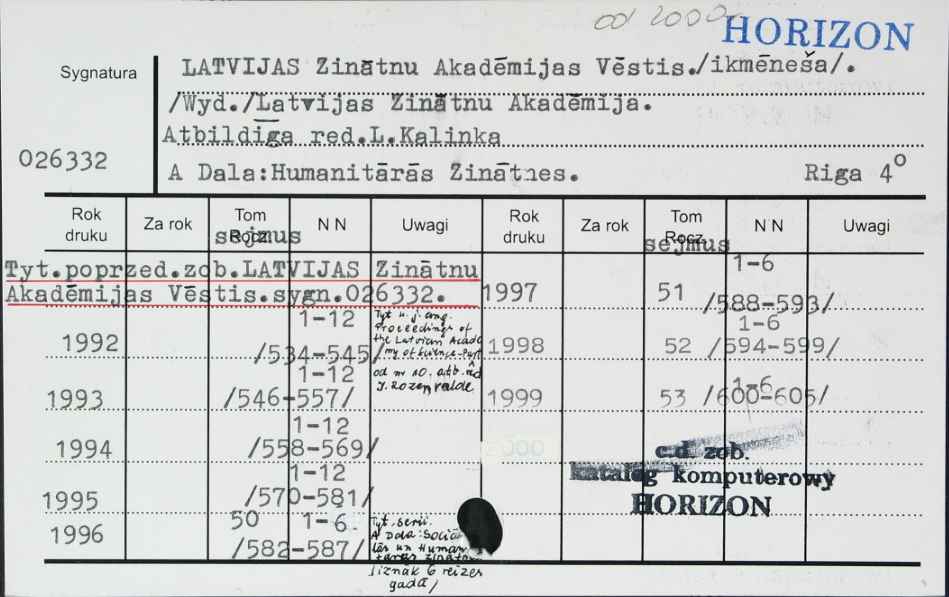 od 2000
HORIZON
Sygnatura
LATVIJAS Zinātnu Akadēmijas Vēstis./ikmēneša/.
/Wyd./Latvijas Zinātnu Akadēmija.
Atbildīga red.L.Kalinka
026332
A Dala:Humanitārās Zinātnes. Riga 4°
Rok druku Za rok Tom Rocz. N N Uwagi Rok druku Za rok Tom Rocz. N N Uwagi
sejmus sejmus
Tyt.poprzed.zob.LATVIJAS Zinātnu
Akadēmijas Vēstis.sygn.026332.
1992 1-12 /534-545/
Tyt w j. ang.
Proceedings of
the Latvian Acade
my of Science. Part
od nr 10. atb. rēd
J. Rozenvalde
1993 1-12 /546-557/
1994 1-12 /558-569/
1995 1-12 /570-581/
1996 50 1-6 /582-587/
Tyt. serii.
A Dala: Sociā
lās un Human
itārās Zināt
/iznāk 6 reizes
gadā/
1997 51 1-6 /588-593/
1998 52 1-6 /594-599/
1999 53 1-6 /600-605/
c.d. zob.
katalog komputerowy
HORIZON